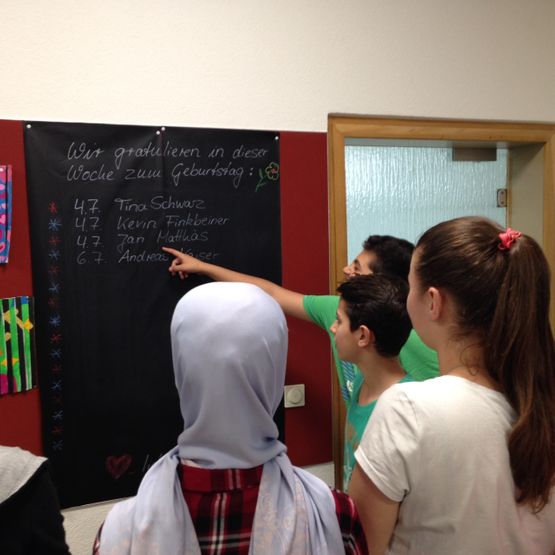 Wir gratulieren in dieser
Woche zum Geburtstag:
4.7. Tina Schwarz
4.7. Kevin Finkbeiner
4.7. Jan Matthäs
6.7. Andreas